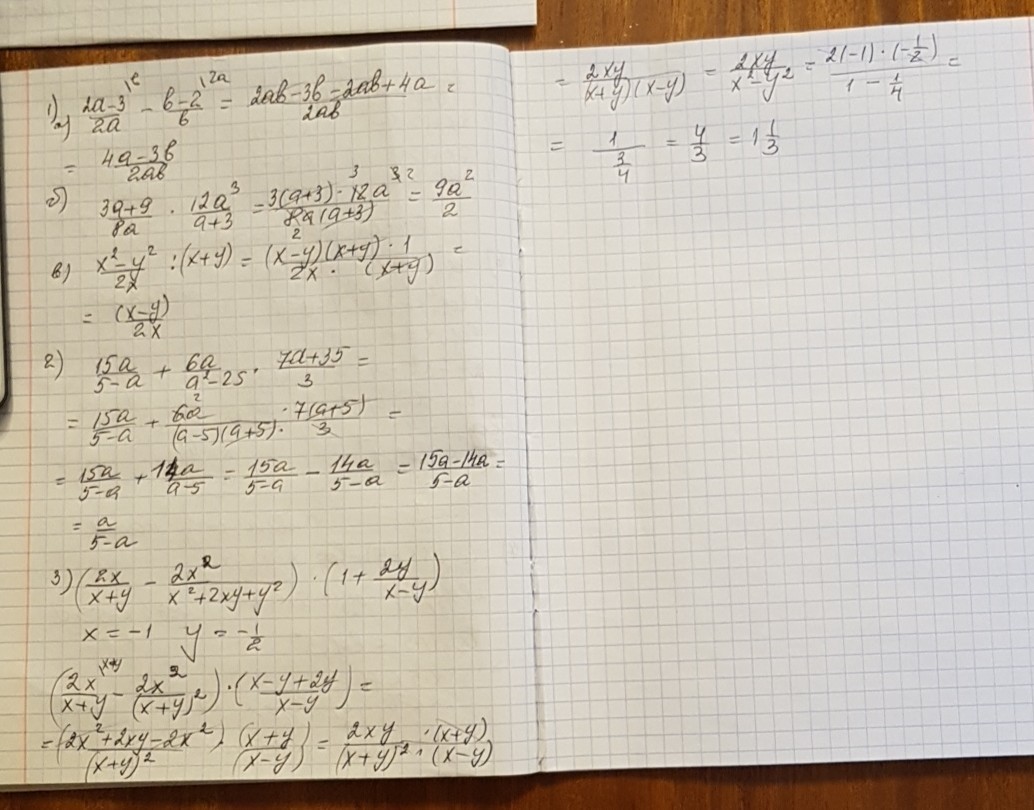 1) а) (2a-3)/(2a) \в - (в-2)/в \2a = (2aв-3в-2aв+4a)/(2aв) =
= (4a-3в)/(2aв)
б) (3a+9)/(8a) · (12a³)/(a+3) = (3(a+3)·12a³)/(8a(a+3)) ³ ² ₂ = (9a²)/2
в) (x²-y²)/(2x) : (x+y) = ((x-y)(x+y)·1)/(2x·(x+y)) =
= (x-y)/(2x)
2) (15a)/(5-a) + (6a)/(a²-25) · (7a+35)/3 =
= (15a)/(5-a) + (6a ² · 7(a+5))/((a-5)(a+5)·3) =
= (15a)/(5-a) + (14a)/(a-5) = (15a)/(5-a) - (14a)/(5-a) = (15a-14a)/(5-a) =
= a/(5-a)
3) ((2x)/(x+y) - (2x²)/(x²+2xy+y²)) · (1+(2y)/(x-y))
x = -1 y = -1/2
((2x)/(x+y) \x+y - (2x²)/(x+y)²) · ((x-y+2y)/(x-y)) =
= (2x²+2xy-2x²)/(x+y)² · (x+y)/(x-y) = (2xy·(x+y))/((x+y)²·(x-y))
= (2xy)/((x+y)(x-y)) = (2xy)/(x²-y²) = (2(-1)·(-1/2))/(1-1/4) =
= 1/(3/4) = 4/3 = 1 1/3